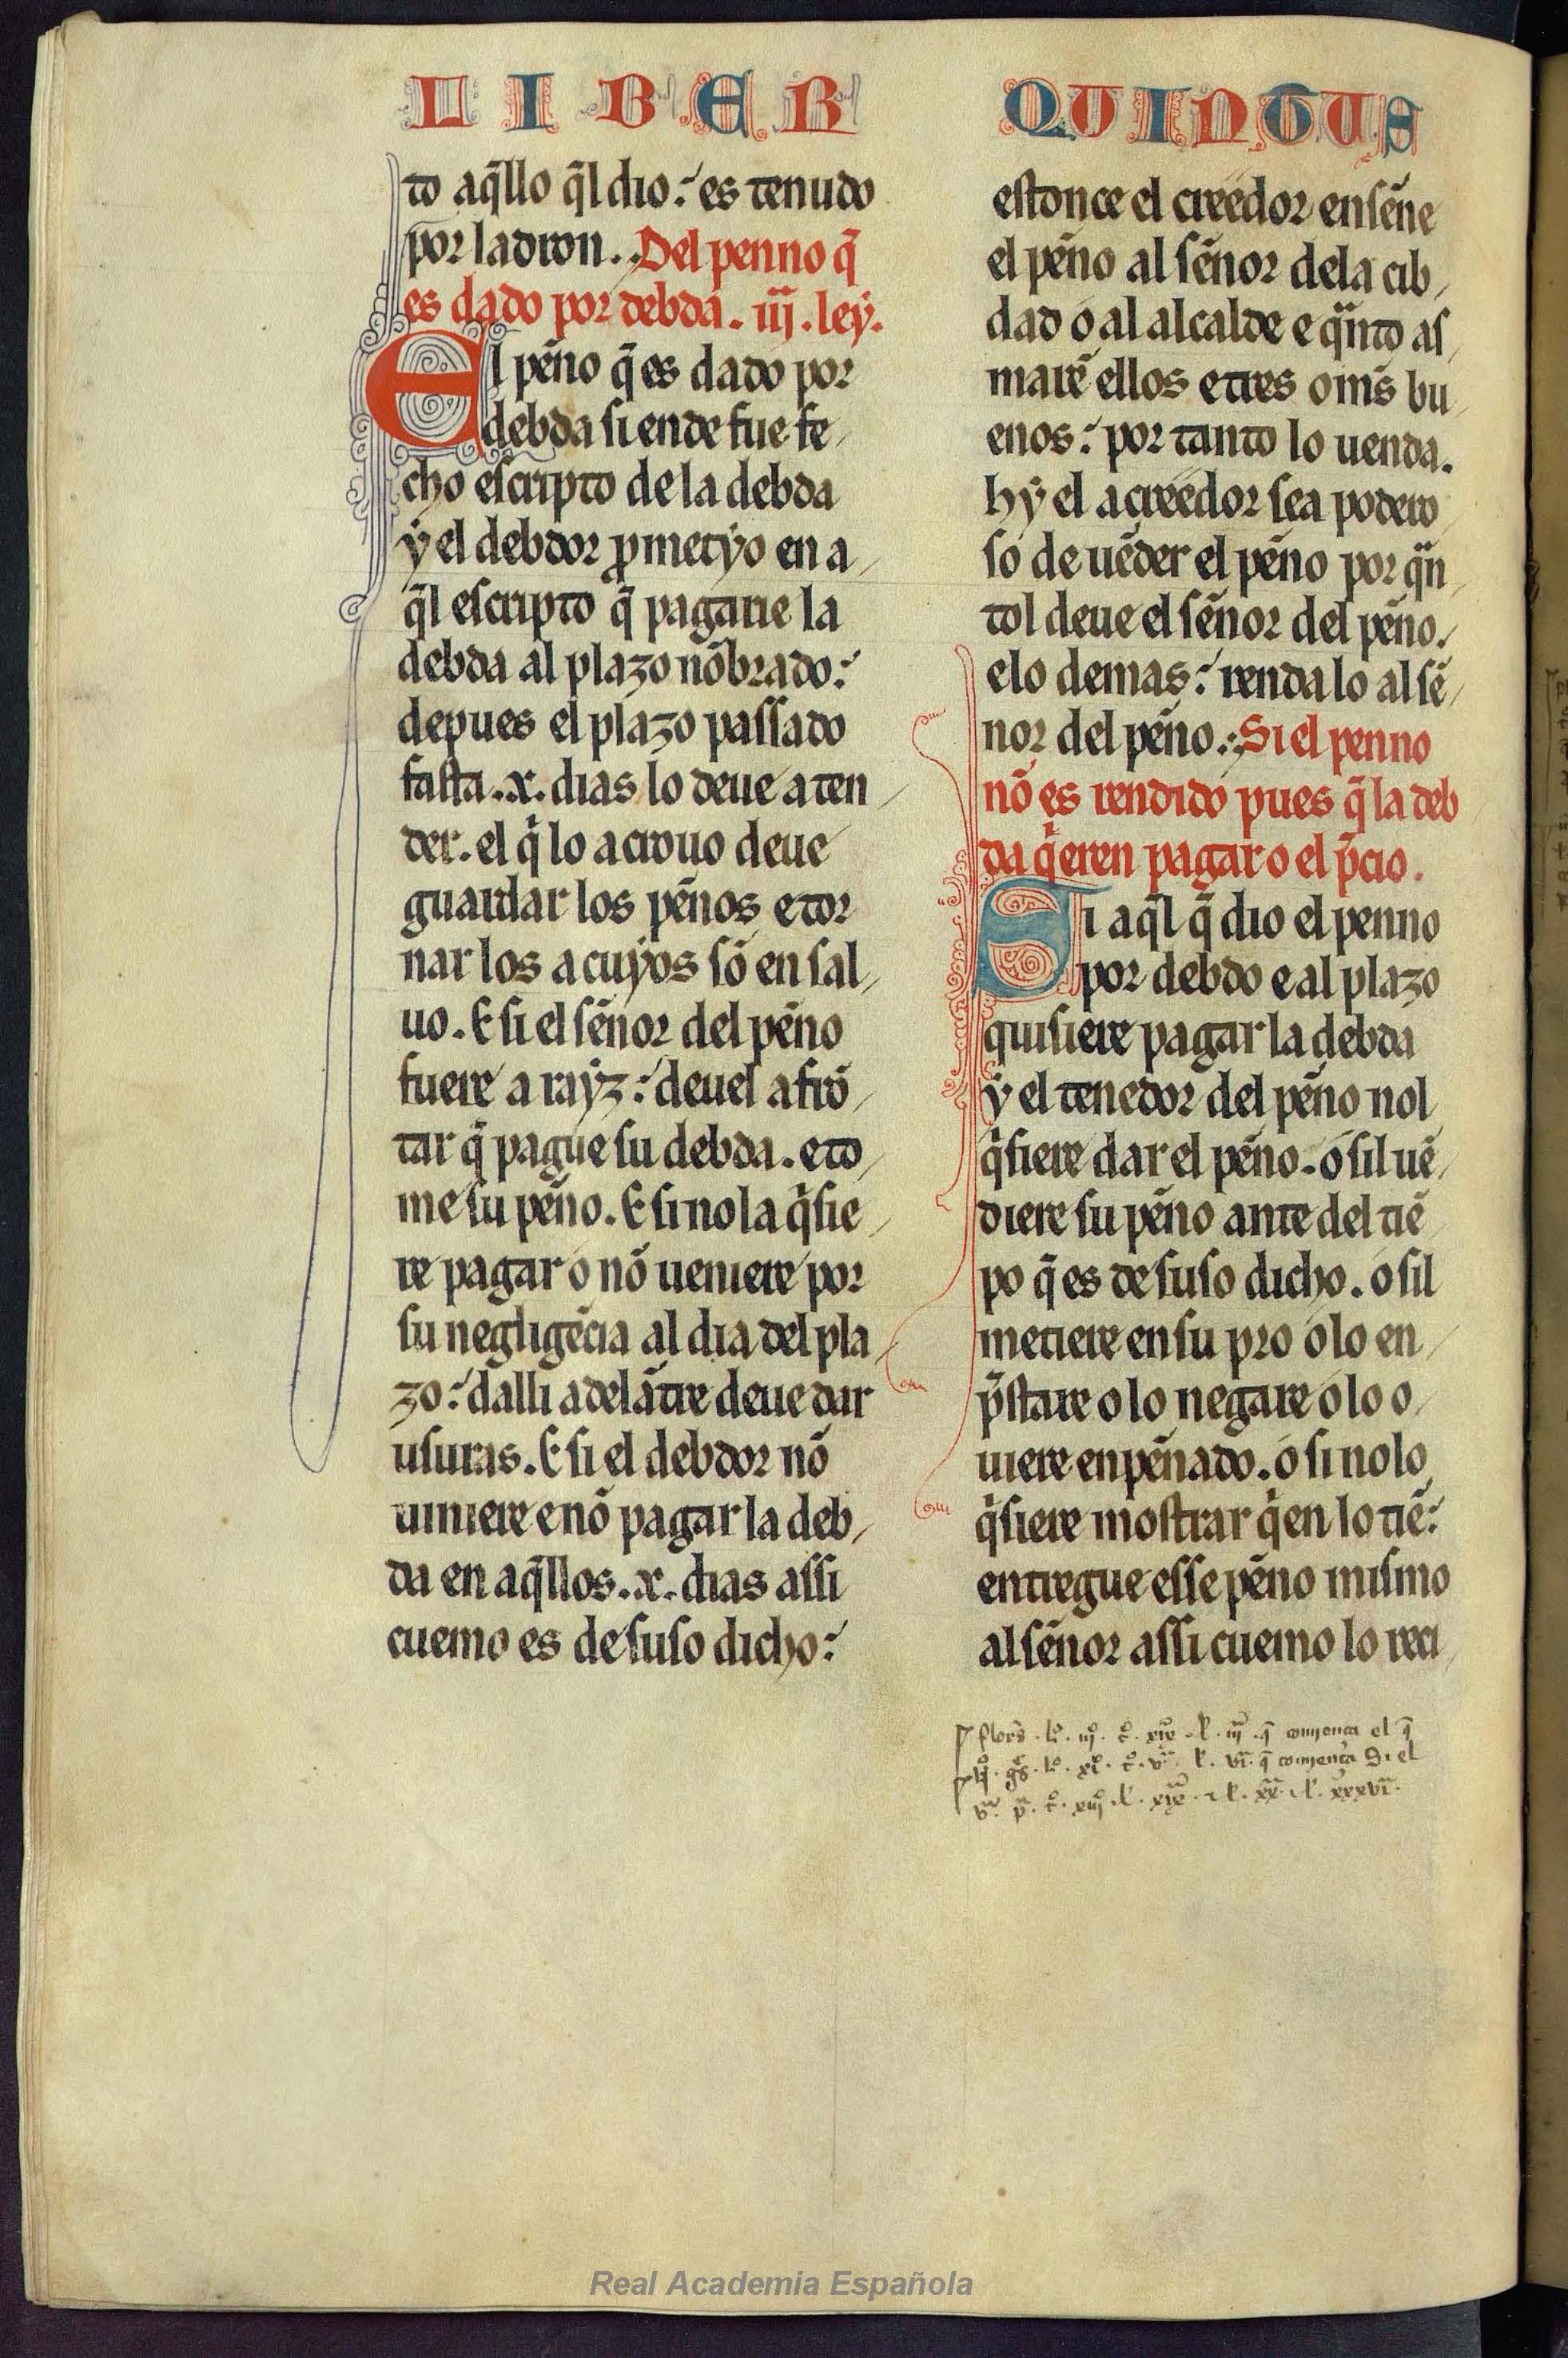 LIBER QUINTUS
to aq̄llo q̄l dio: es tenudo
por ladron. Del penno q̄
es dado por debda. iij. leẏ.
El pēno q̄ es dado por
debda si ende fue fe/
cho escripto de la debda
ẏ el debdor ꝓmetẏo en a/
q̄l escripto q̄ pagarie la
debda al plazo nōbrado:
depues el plazo passado
fasta .x. dias lo deue aten/
der. el q̄ lo acrouo deue
guardar los pēnos e tor
nar los a cuẏos sō en sal/
uo. E si el sēnor del pēno
fuere a raẏz: deuel afrō/
tar q̄ pague su debda. e to/
me su pēno. E si no la qͥsie/
re pagar o nō ueniere por
su negligēcia al dia del pla/
zo: dalli adelātre deue dar
usuras. E si el debdor nō
uiniere e nō pagar la deb/
da en aq̄llos .x. dias assi
cuemo es de suso dicho:
estonce el creedor ensēne
el pēno al sēnor dela cib/
dad o al alcalde e qͣnto as/
marē ellos e tres om̄s bu/
enos: por tanto lo uenda.
hẏ el acreedor sea podero/
so de uēder el pēno por qͣn/
tol deue el sēnor del pēno./
e lo demas: renda lo al sē/
nor del pēno. Si el penno
nō es rendido pues q̄ la deb
da qͥeren pagar o el p̄cio.
Si aq̄l q̄ dio el penno
por debdo e al plazo
quisiere pagar la debda
ẏ el tenedor del pēno nol
qͥsiere dar el pēno. o sil uē/
diere su pēno ante del tiē
po q̄ es de suso dicho. o sil
metiere en su pro o lo en/
p̄stare o lo negare o lo o/
uiere enpēnado. o si no lo
qͥsiere mostrar qͥen lo tiē:
entregue esse pēno mismo
al sēnor assi cuemo lo reci/
q̄ comença el q̄
q̄ comença Si el
Real Academia Española